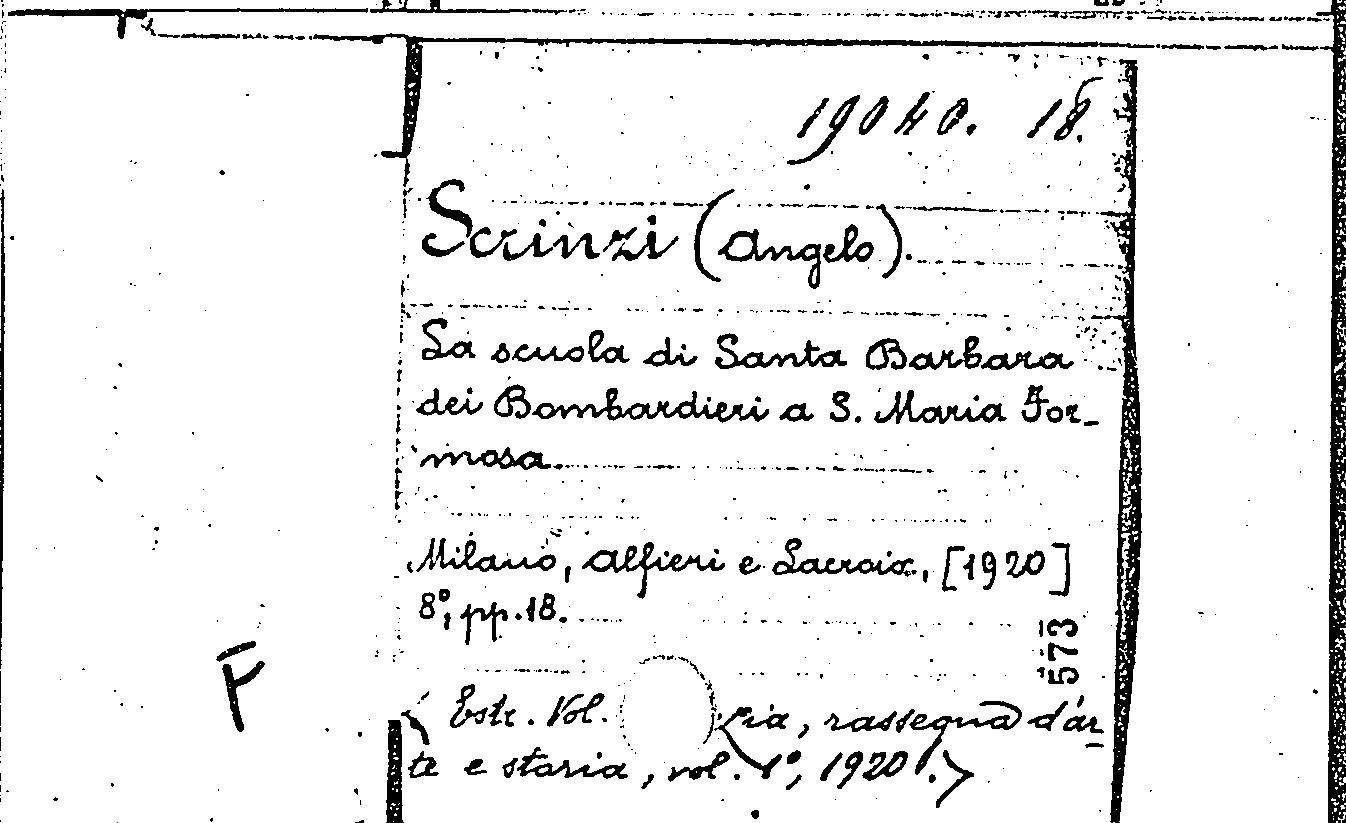 19040. 18.
Scrinzi (Angelo).
La scuola di Santa Barbara
dei Bombardieri a S. Maria For-
mosa.
Milano, Alfieri e Lacroix, [1920]
8°, pp. 18.
573
F
Estr. Vol. ria, rassegna d'ar-
te e storia, vol. 1°, 1920.